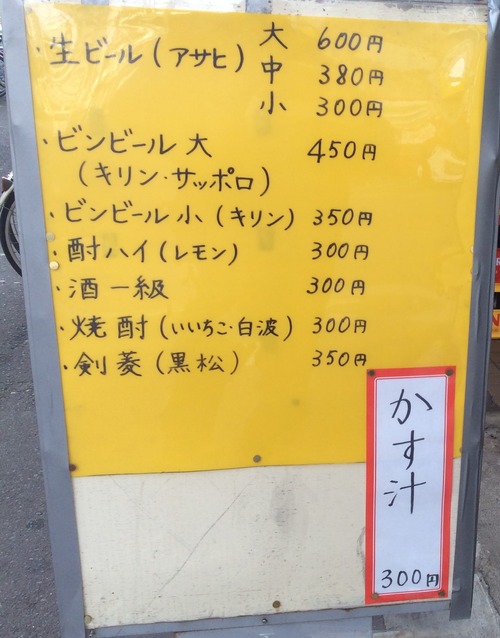 ・生ビール(アサヒ) 大 600円
中 380円
小 300円
・ビンビール 大 450円
(キリン・サッポロ)
・ビンビール 小(キリン) 350円
・酎ハイ(レモン) 300円
・酒一級 300円
・焼酎(いいちこ・白波) 300円
・剣菱(黒松) 350円
かす汁
300円